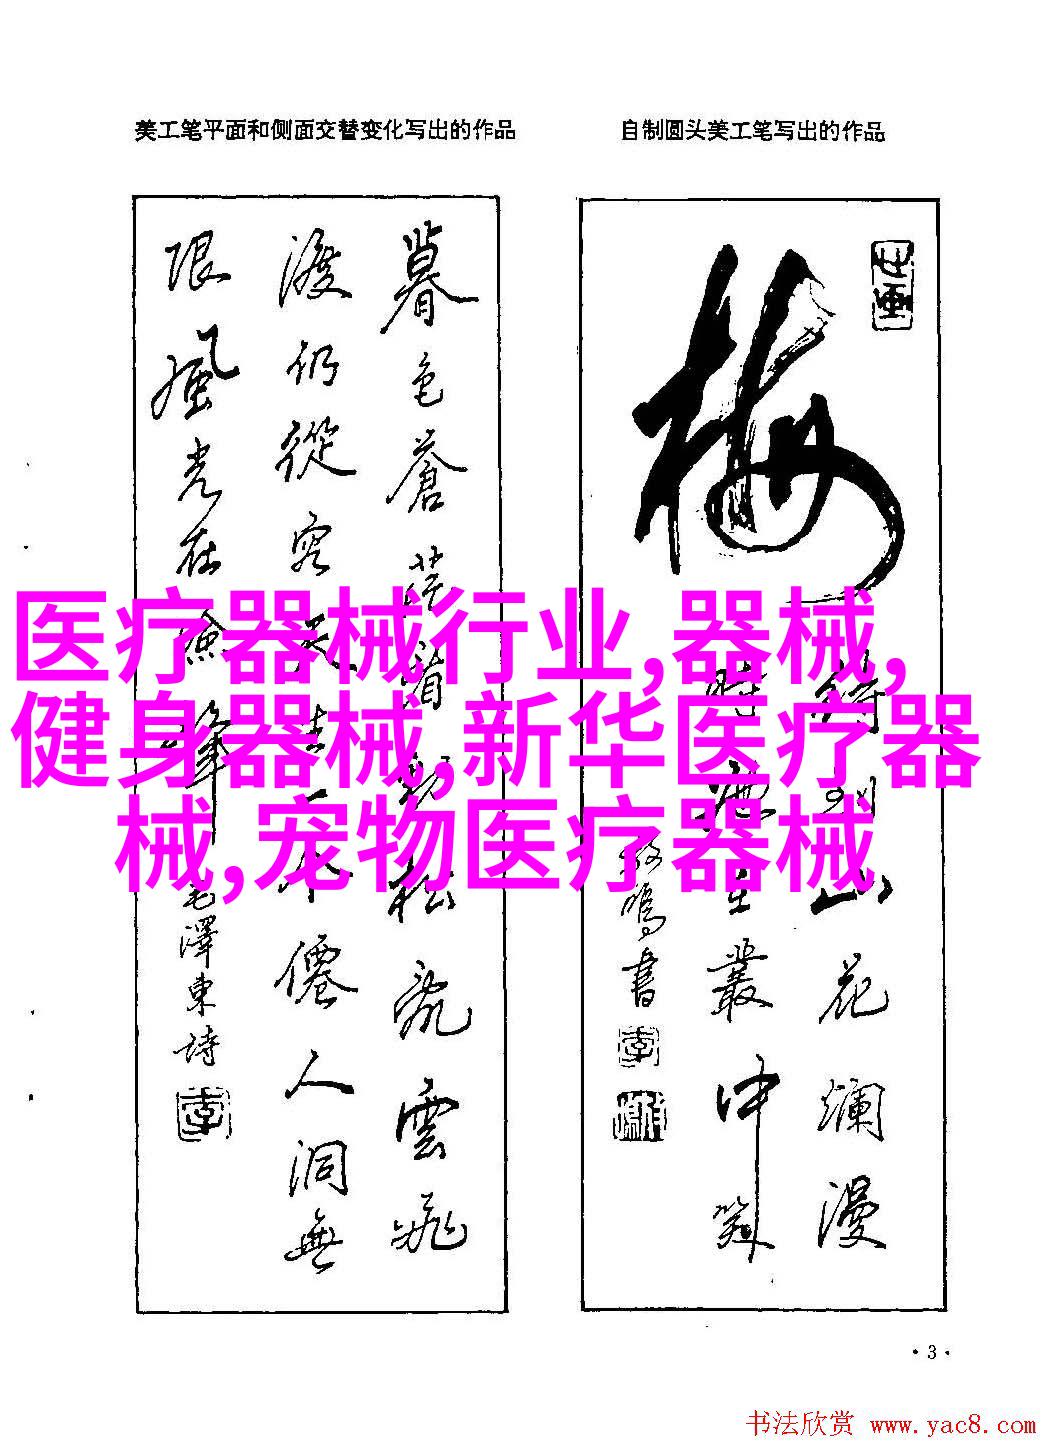 美工笔平面和侧面交替变化写出的作品
自制圆头美工笔写出的作品
暮色蒼茫看勁松亂雲飛
渡仍從容天生一个僊人洞無
限風光在險峰
毛澤東詩
梅
待到山花爛漫
時她在叢中笑
書
医疗器械行业,器械,
健身器械,新华医疗器
械,宠物医疗器械
·3·
书法欣赏 www.yac8.com